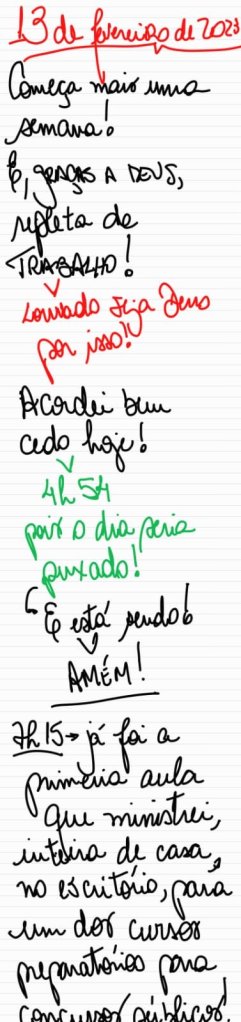 13 de fevereiro de 2023
Começa mais uma
semana!
E, GRAÇAS A DEUS,
repleta de
TRABALHO!
Louvado seja Deus
por isso!!
Acordei bem
cedo hoje!
4h54
pois o dia seria
puxado!
E está sendo!
AMÉM!
7h15 → já foi a
primeira aula
que ministrei,
inteira de casa,
no escritório, para
um dos cursos
preparatórios para
concursos públicos!